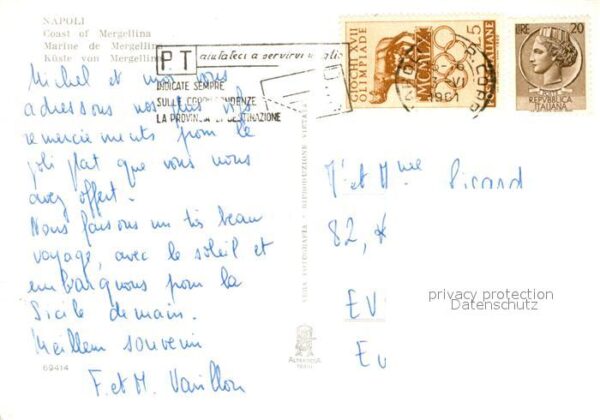 NAPOLI
Coast of Mergellina
Marine de Mergellina
Küste von Mergellina
P T aiutateci a servirvi meglio
INDICATE SEMPRE
SULLE CORRISPONDENZE
LA PROVINCIA DI DESTINAZIONE
GIOCHI DELLA XVII
OLIMPIADE
MCMLX
ROMA
L. 5
POSTE ITALIANE
LIRE 20
REPVBBLICA
ITALIANA
1961
Michel et moi vous
adressons nos plus vifs
remerciements pour le
joli plat que vous nous
avez offert.
Nous faisons un très beau
voyage, avec le soleil et
embarquons pour la
Sicile demain.
Meilleur souvenir
F. et M. Vanillon
69414
VERA FOTOGRAFIA - RIPRODUZIONE VIETATA
Mr et Mme Picard
82,
EV
Ev
privacy protection
Datenschutz